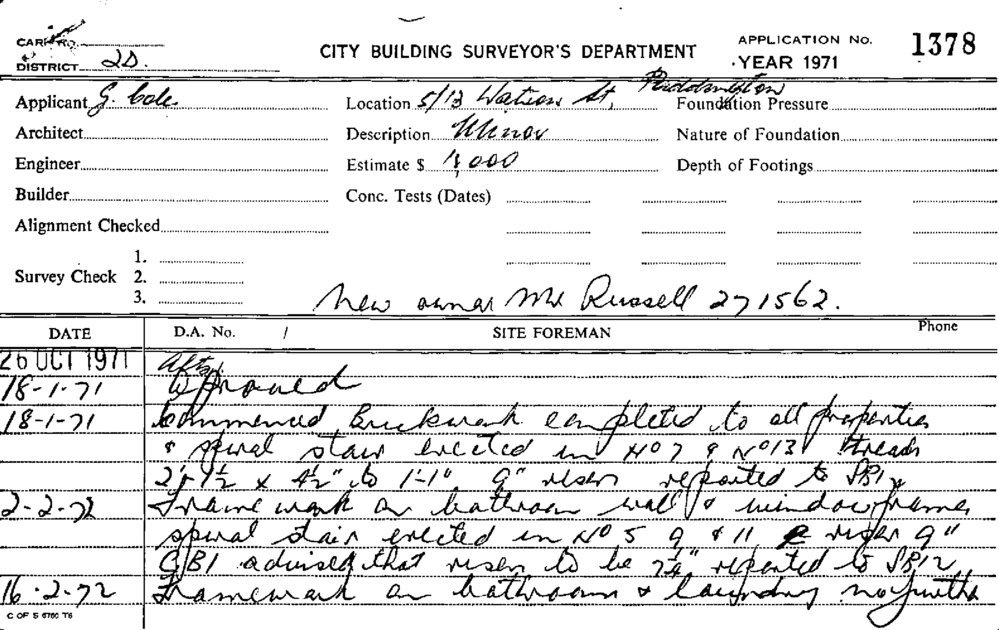 CARD NO.
DISTRICT 2D.
CITY BUILDING SURVEYOR'S DEPARTMENT
APPLICATION No. 1378
YEAR 1971
Applicant G. Cole
Location 5/13 Watson St, Paddington
Foundation Pressure
Architect
Description Minor
Nature of Foundation
Engineer
Estimate $ 1,000
Depth of Footings
Builder
Conc. Tests (Dates)
Alignment Checked
1.
Survey Check 2.
3.
New owner Mr Russell 271562.
DATE D.A. No. / SITE FOREMAN Phone
26 OCT 1971
18-1-71 Approved
18-1-71 Commenced Brickwork completed to all properties
& spiral stair erected in No 7 & No 13 treads
x 4½" to 1'-1" 9" risers reported to SB12
2-2-72 Framework on bathroom wall & window frames
spiral stair erected in No 5 9 & 11 riser 9"
CBI advised that risers to be reported to SB12
16.2.72 Framework on bathroom & laundry no further
C OF S 6760 T6